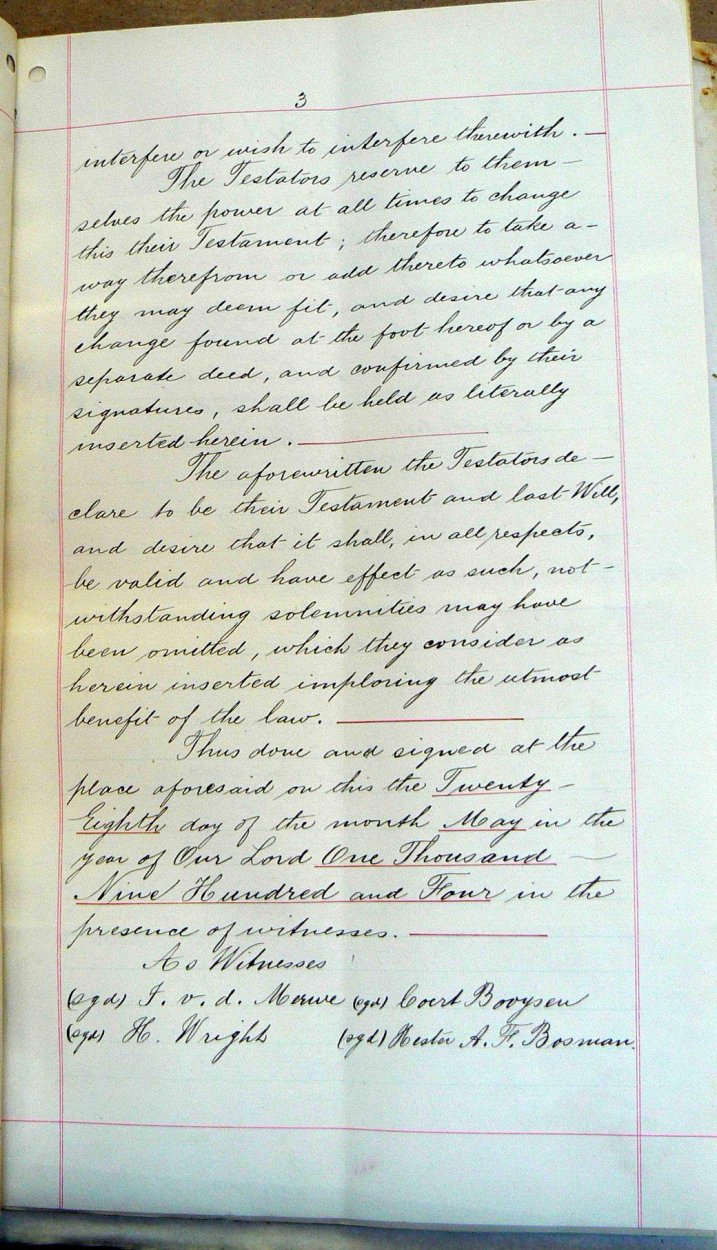 3
interfere or wish to interfere therewith. —
The Testators reserve to them-
selves the power at all times to change
this their Testament; therefore to take a-
way therefrom or add thereto whatsoever
they may deem fit, and desire that any
change found at the foot hereof or by a
separate deed, and confirmed by their
signatures, shall be held as literally
inserted herein. —
The aforewritten the Testators de-
clare to be their Testament and last Will,
and desire that it shall, in all respects,
be valid and have effect as such, not-
withstanding solemnities may have
been omitted, which they consider as
herein inserted imploring the utmost
benefit of the law. —
Thus done and signed at the
place aforesaid on this the Twenty-
Eighth day of the month May in the
year of Our Lord One Thousand —
Nine Hundred and Four in the
presence of witnesses. —
As Witnesses
(sgd) F. v. d. Merwe (sgd) Coert Booysen
(sgd) H. Wright (sgd) Hester A. F. Bosman.